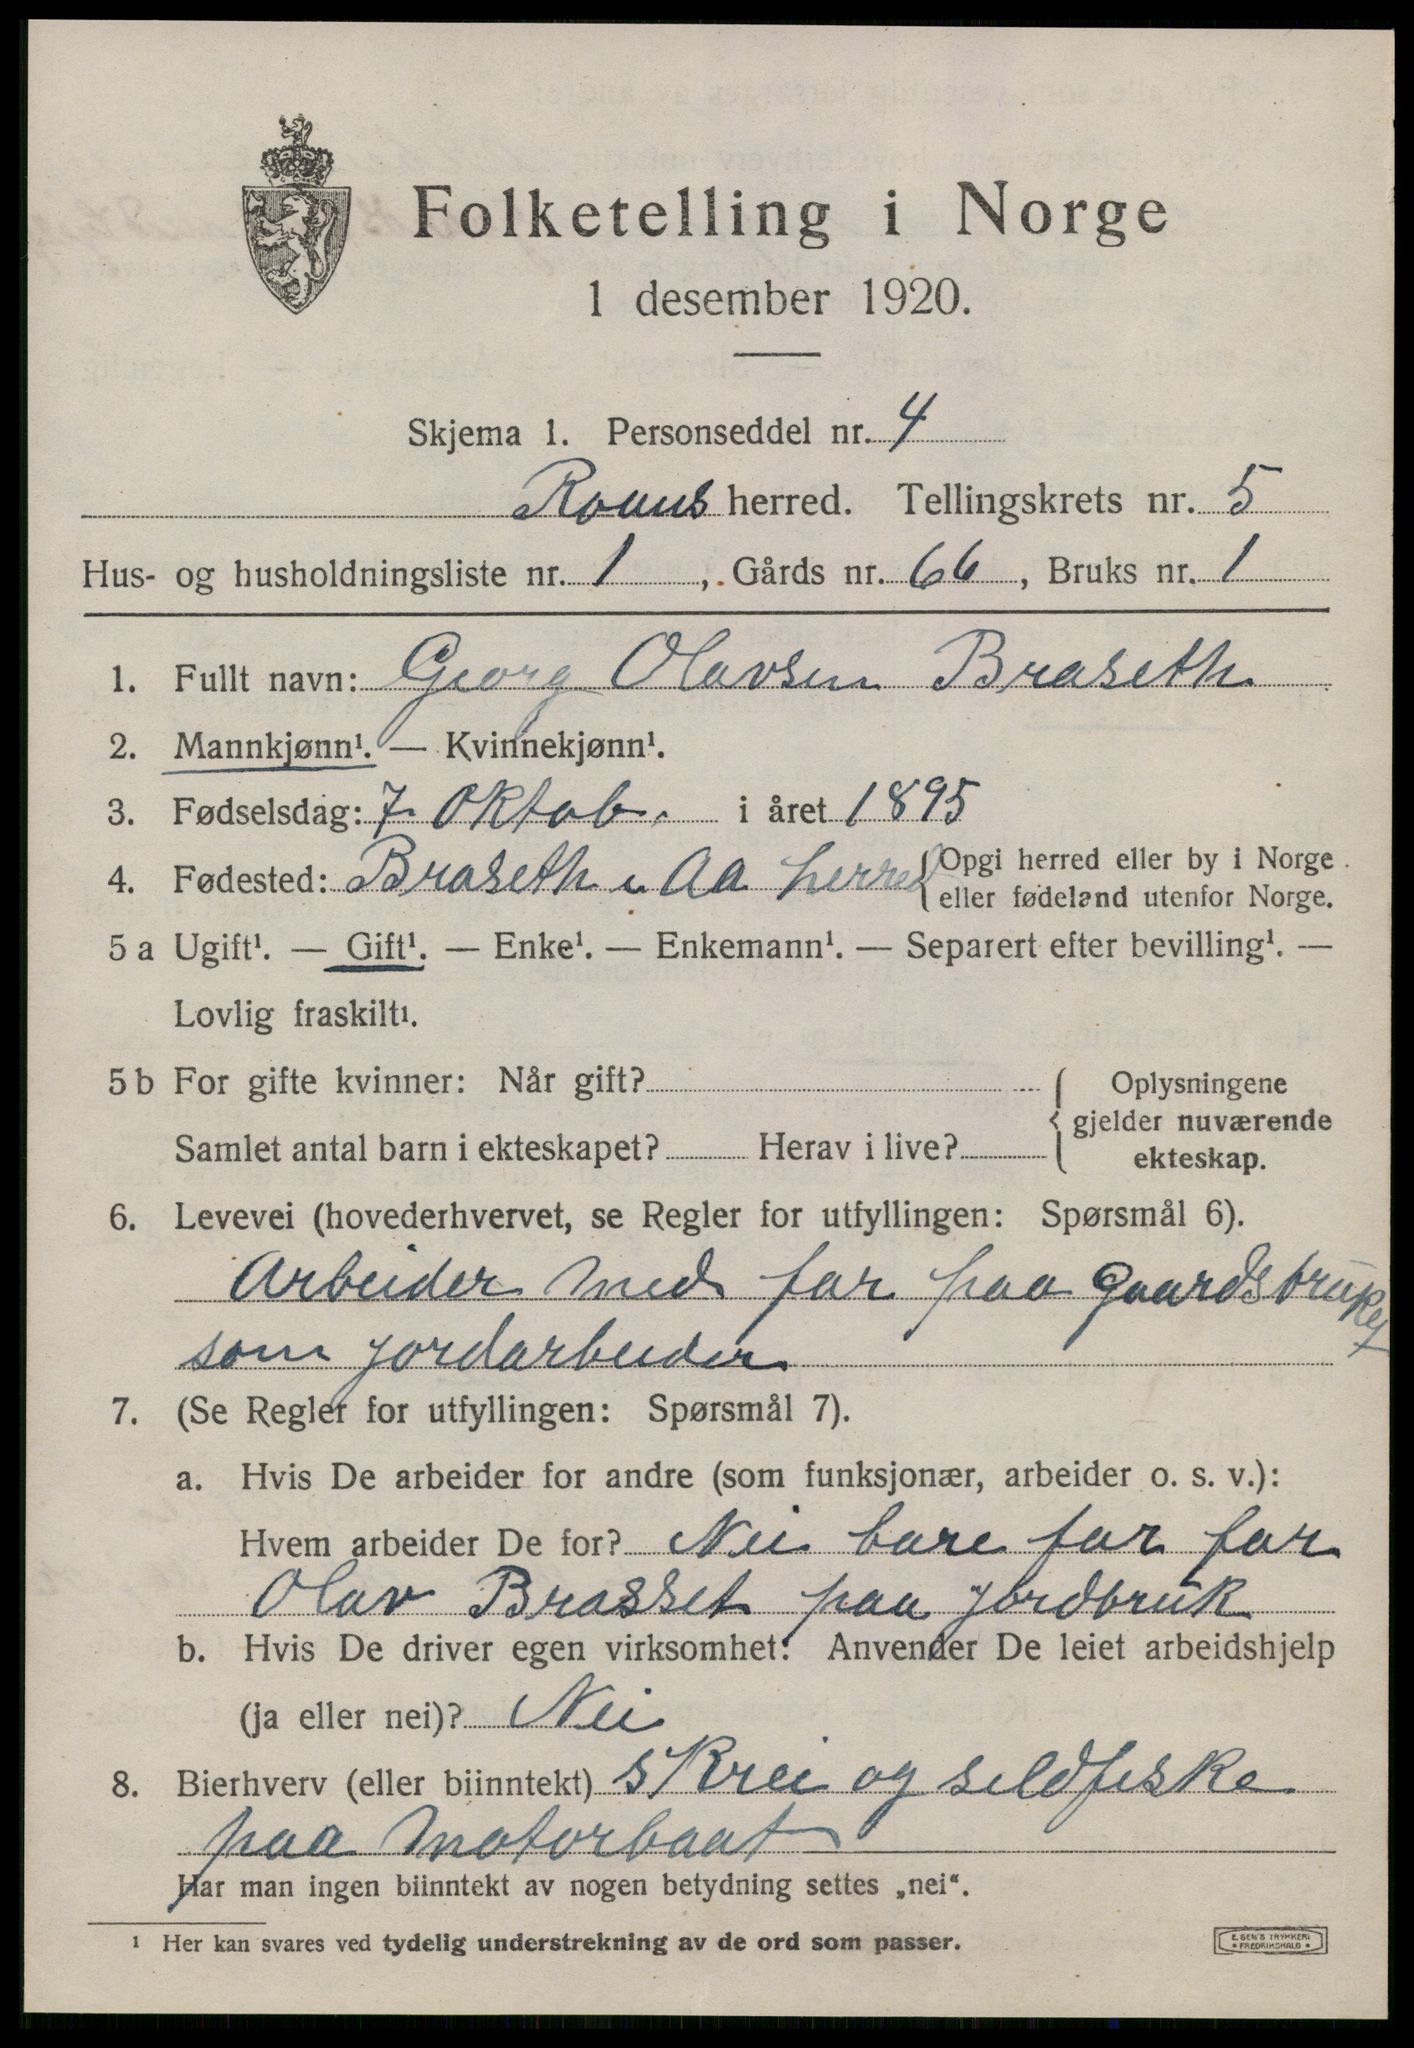 Folketelling i Norge
1 desember 1920.
Skjema 1. Personseddel nr. 4
Roans herred. Tellingskrets nr. 5
Hus- og husholdningsliste nr. 1, Gårds nr. 66, Bruks nr. 1
1. Fullt navn: Georg Olavsen Braseth
2. Mannkjønn¹. — Kvinnekjønn¹.
3. Fødselsdag: 7 Oktob. i året 1895
4. Fødested: Braseth i Aa herred {Opgi herred eller by i Norge
eller fødeland utenfor Norge.
5 a Ugift¹. — Gift¹. — Enke¹. — Enkemann¹. — Separert efter bevilling¹. —
Lovlig fraskilt¹.
5 b For gifte kvinner: Når gift? { Oplysningene
gjelder nuværende
Samlet antal barn i ekteskapet? Herav i live? ekteskap.
6. Levevei (hovederhvervet, se Regler for utfyllingen: Spørsmål 6).
Arbeider med far paa Gaardsbruket
som jordarbeider
7. (Se Regler for utfyllingen: Spørsmål 7).
a. Hvis De arbeider for andre (som funksjonær, arbeider o. s. v.):
Hvem arbeider De for? Nei bare for far
Olav Brasset paa jordbruk
b. Hvis De driver egen virksomhet: Anvender De leiet arbeidshjelp
(ja eller nei)? Nei
8. Bierhverv (eller biinntekt) skrei og sildfiske
paa motorbaat
Har man ingen biinntekt av nogen betydning settes „nei“.
¹ Her kan svares ved tydelig understrekning av de ord som passer.
E. SEM'S TRYKKERI
• FREDRIKSHALD •